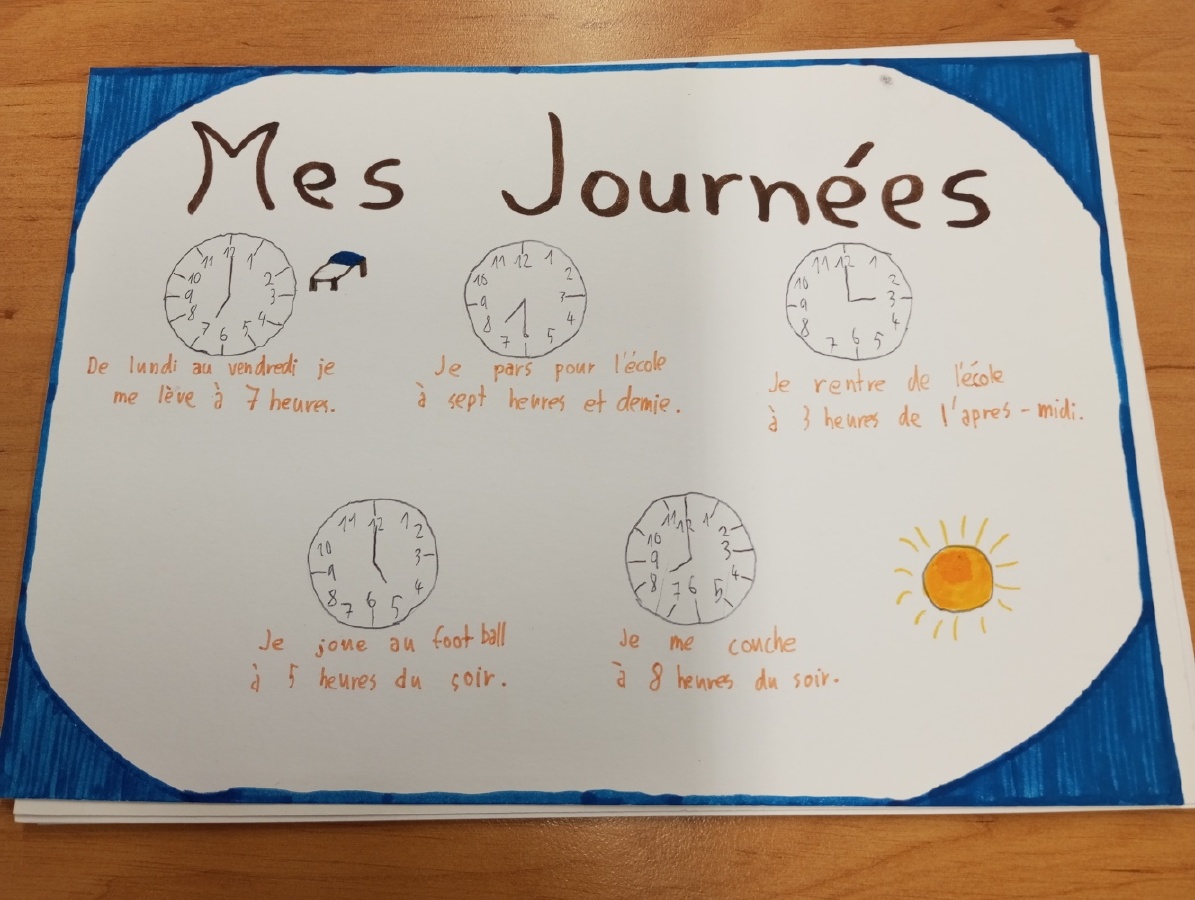 Mes Journées
12 1 2 3 4 5 6 7 8 9 10 11
De lundi au vendredi je
me lève à 7 heures.
12 1 2 3 4 5 7 8 9 10 11
Je pars pour l'école
à sept heures et demie.
12 1 2 3 4 5 6 7 8 9 10 11
Je rentre de l'école
à 3 heures de l'apres-midi.
12 1 2 3 4 5 6 7 8 9 10 11
Je joue au foot ball
à 5 heures du soir.
12 1 2 3 4 5 6 7 8 9 10 11
Je me couche
à 8 heures du soir.